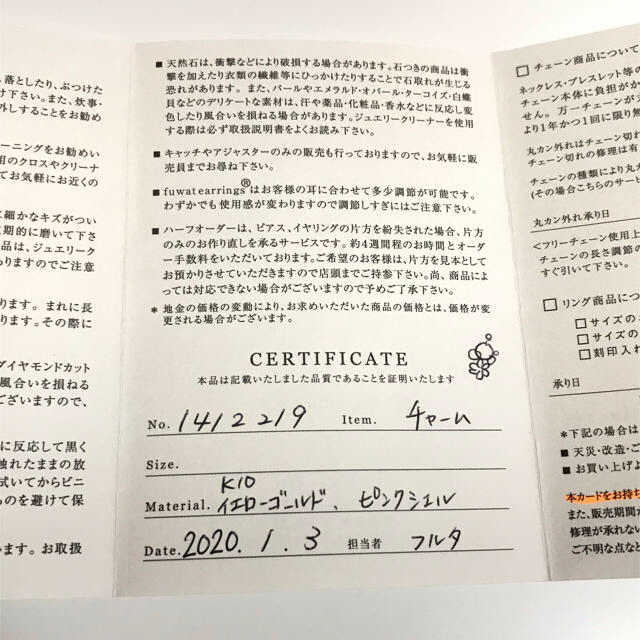 、落としたり、ぶつけた
け下さい。また、炊事・
外しすることをお勧め
ーニングをお勧めい
用のクロスやクリーナ
てお気軽にお近くの
に細かなキズがつい
期的に磨いて下さ
品は、ジュエリーク
ありますのでご注意
ります。 まれに長
ります。その際に
ダイヤモンドカット
風合いを損ねる
ございますので、
に反応して黒く
触れたままの放
拭いてからビニ
ものを避けて保
います。お取扱
■ 天然石は、衝撃などにより破損する場合があります。石つきの商品は衝
撃を加えたり衣類の繊維等にひっかけたりすることで石取れが生じる
恐れがあります。 また、パールやエメラルド・オパール・ターコイズ・白蝶
貝などのデリケートな素材は、汗や薬品・化粧品・香水などに反応し変
色したり風合いを損ねる場合があります。ジュエリークリーナーを使用
する際は必ず取扱説明書をよくお読み下さい。
■ キャッチやアジャスターのみの販売も行っておりますので、お気軽に販
売員までお尋ね下さい。
■ fuwatearrings®はお客様の耳に合わせて多少調節が可能です。
わずかでも使用感が変わりますので調節しすぎにはご注意下さい。
■ ハーフオーダーは、ピアス、イヤリングの片方を紛失された場合、片方
のみのお作り直しを承るサービスです。約4週間程のお時間とオーダ
ー手数料をいただいております。ご希望のお客様は、片方を見本として
お預かりさせていただきますので店頭までご持参下さい。尚、商品によ
っては対応できない場合がございますので予めご了承下さい。
* 地金の価格の変動により、お求めいただいた商品の価格とは、価格が変
更される場合がございます。
CERTIFICATE
本品は記載いたしました品質であることを証明いたします
No. 1412219 Item. チャーム
Size.
K10
Material. イエローゴールド、ピンクシェル
Date. 2020. 1. 3 担当者 フルタ
□ チェーン商品について
ネックレス・ブレスレット等の
チェーン本体に負担がか
せん。 万一チェーンが
より1年かつ1回に限り無
丸カン外れはチェーン切れ
チェーン切れの修理は有
チェーンの種類により丸カ
(その場合こちらのサービ
丸カン外れ承り日
<フリーチェーン使用上
チェーンの長さ調節の
すぐ引いて下さい。
□ リング商品につ
□ サイズのお
□ サイズの
□ 刻印入れ
承り日
*下記の場合は
■ 天災・改造・ご
■ お買い上げよ
本カードをお持ち
また、販売期間が
修理が承れない
ご不明な点など